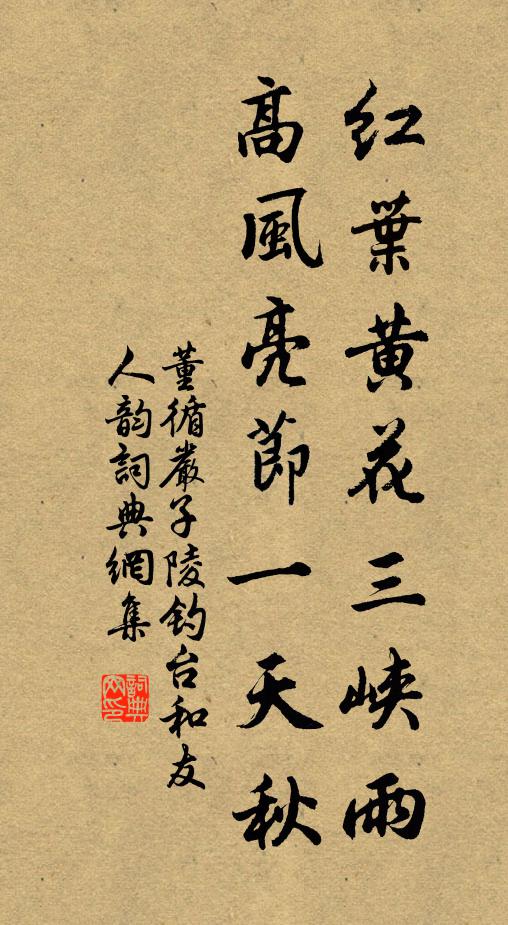 紅葉黄花三峡雨
高風亮節一天秋
董循嚴子陵釣台和友
人韵詞典網集
詞典